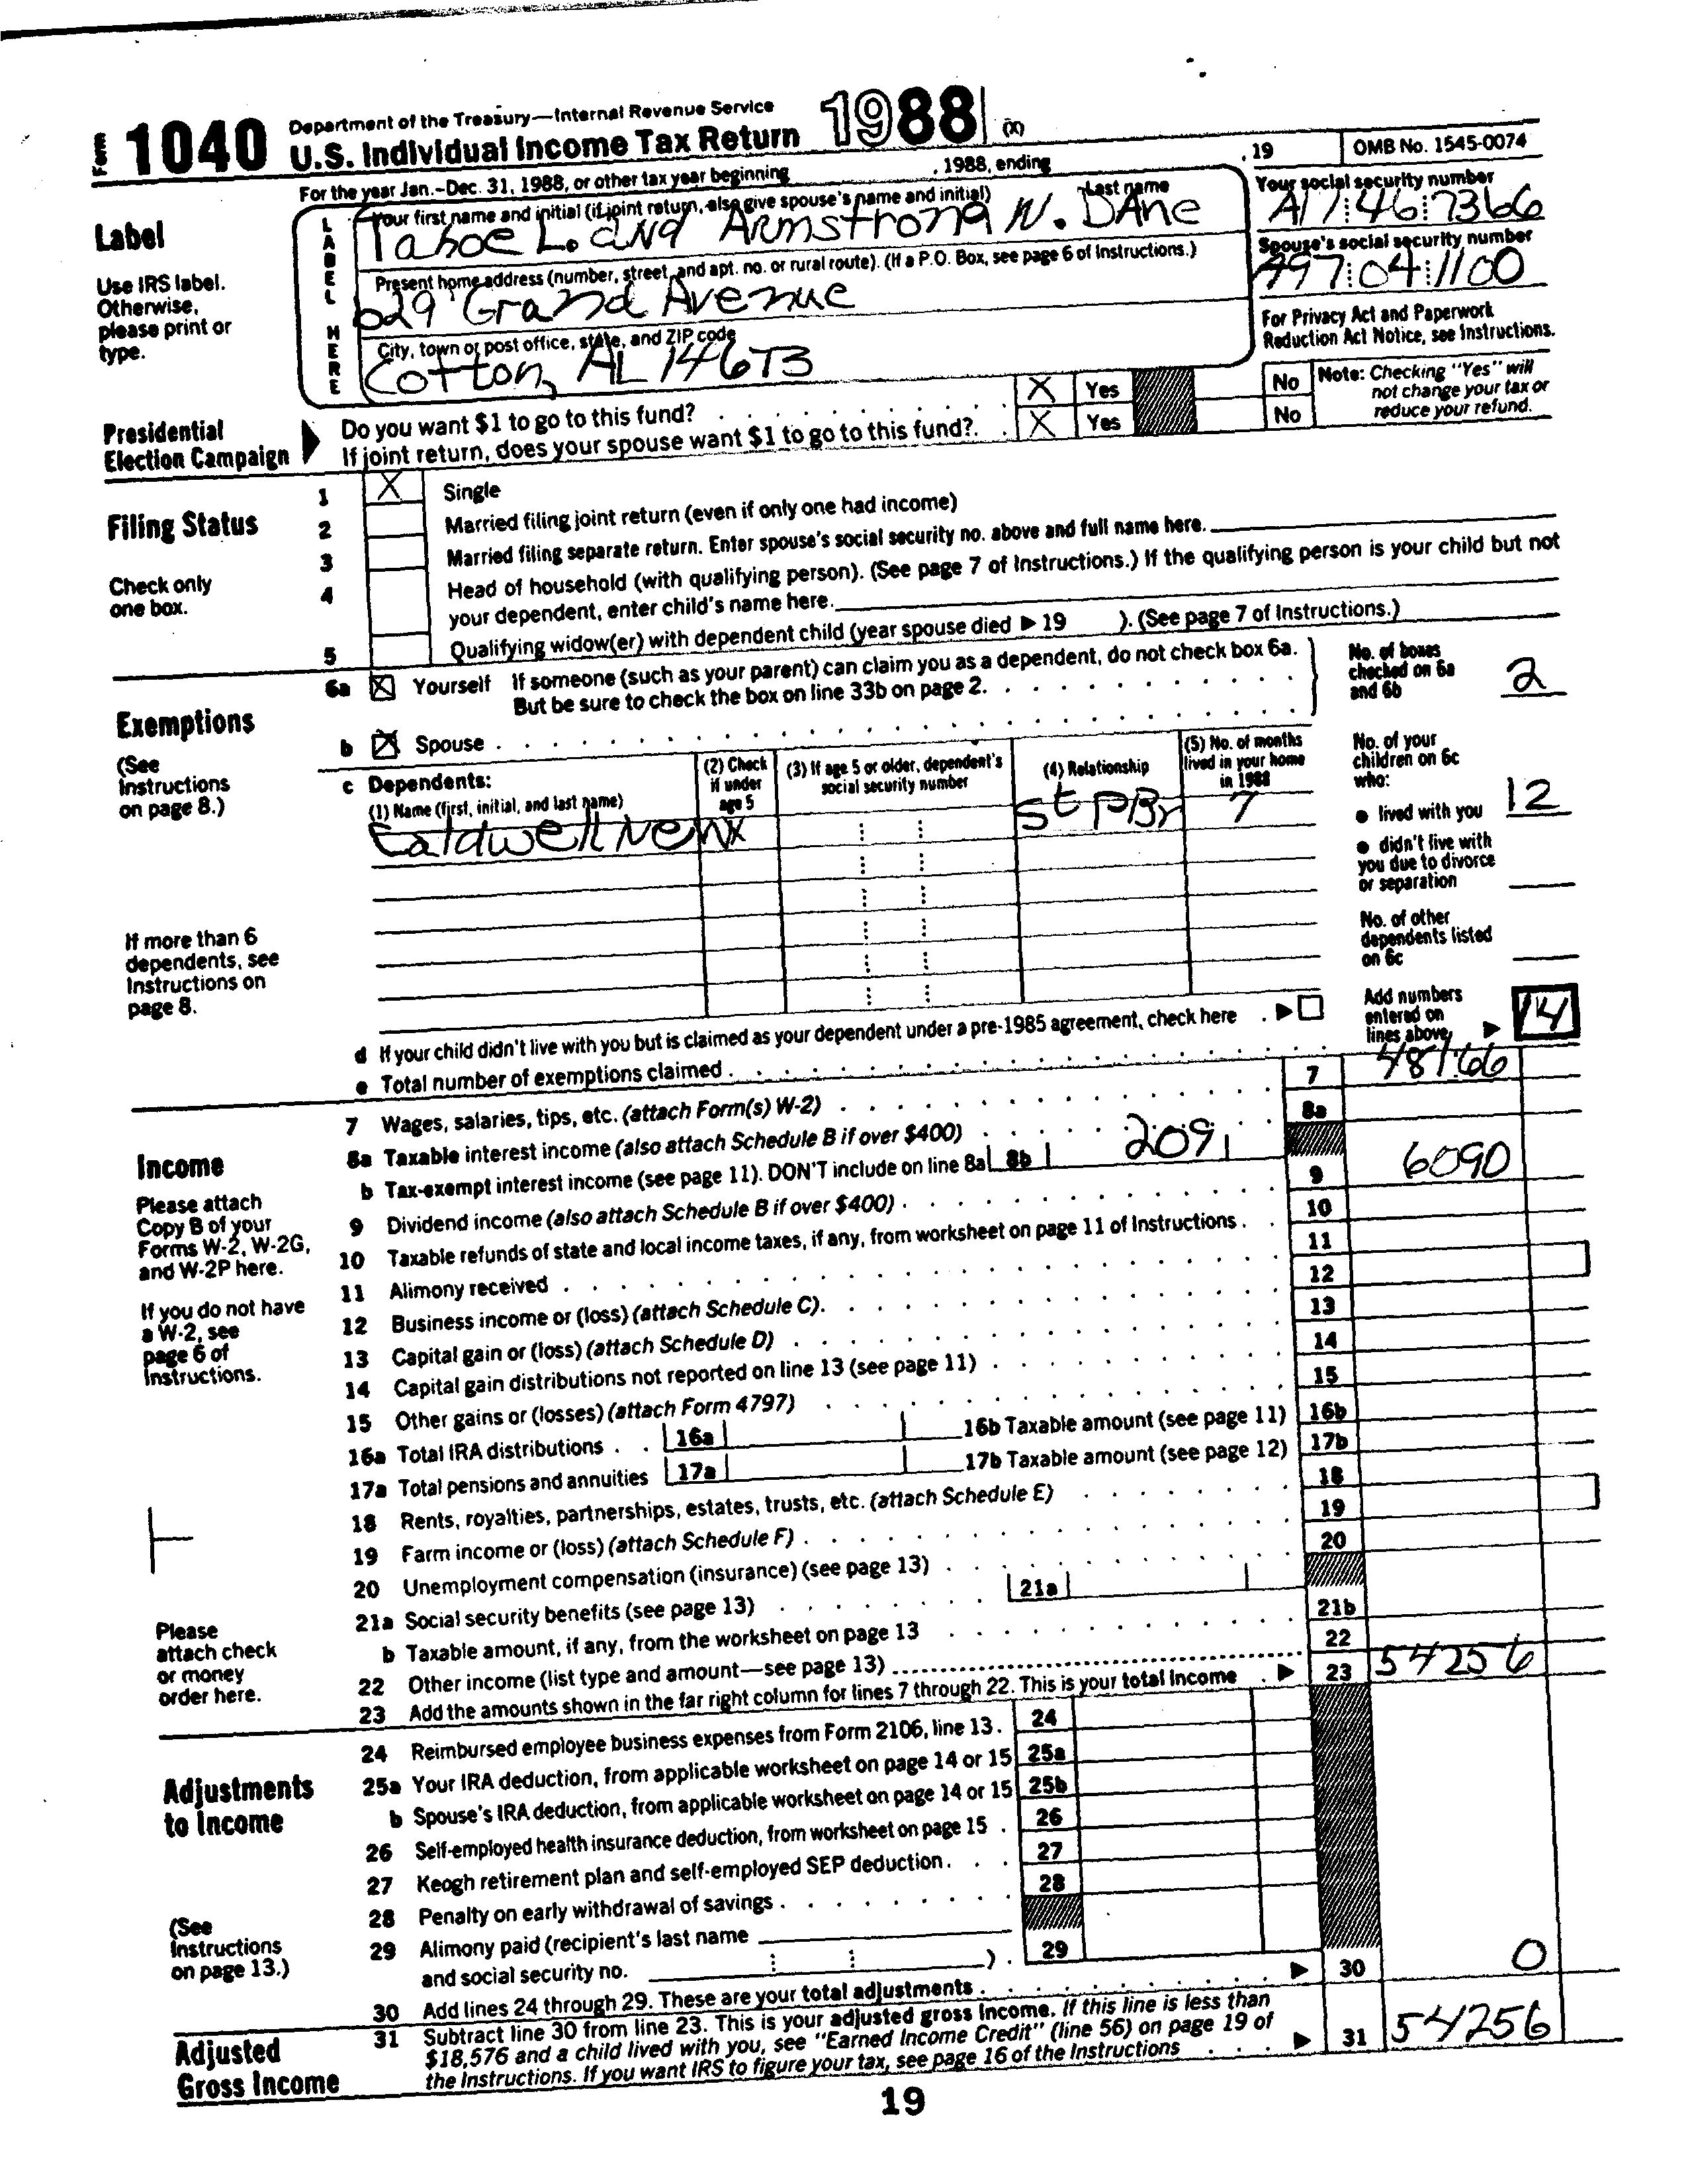 Form 1040 Department of the Treasury—Internal Revenue Service
U.S. Individual Income Tax Return 1988 (X)
For the year Jan.-Dec. 31, 1988, or other tax year beginning , 1988, ending , 19 OMB No. 1545-0074
Label
Use IRS label. Otherwise, please print or type.
LABEL HERE
Your first name and initial (if joint return, also give spouse's name and initial) Last name
Tahoe L. and Armstrong N. DAne
Your social security number
A17:46:7366
Present home address (number, street, and apt. no. or rural route). (If a P.O. Box, see page 6 of Instructions.)
629 Grand Avenue
Spouse's social security number
A97:04:1100
City, town or post office, state, and ZIP code
Cotton, AL 146T3
For Privacy Act and Paperwork Reduction Act Notice, see Instructions.
Presidential Election Campaign
Do you want $1 to go to this fund? X Yes No
If joint return, does your spouse want $1 to go to this fund? X Yes No
Note: Checking "Yes" will not change your tax or reduce your refund.
Filing Status
Check only one box.
1 X Single
2 Married filing joint return (even if only one had income)
3 Married filing separate return. Enter spouse's social security no. above and full name here.
4 Head of household (with qualifying person). (See page 7 of Instructions.) If the qualifying person is your child but not
your dependent, enter child's name here.
5 Qualifying widow(er) with dependent child (year spouse died ▶ 19 ). (See page 7 of Instructions.)
Exemptions
(See Instructions on page 8.)
6a X Yourself If someone (such as your parent) can claim you as a dependent, do not check box 6a.
But be sure to check the box on line 33b on page 2.
b X Spouse
No. of boxes checked on 6a and 6b 2
c Dependents:
(1) Name (first, initial, and last name)
(2) Check if under age 5
(3) If age 5 or older, dependent's social security number
(4) Relationship
(5) No. of months lived in your home in 1988
Caldwell New X stPBr 7
No. of your children on 6c who:
● lived with you 12
● didn't live with you due to divorce or separation
No. of other dependents listed on 6c
If more than 6 dependents, see Instructions on page 8.
d If your child didn't live with you but is claimed as your dependent under a pre-1985 agreement, check here ▶
e Total number of exemptions claimed
Add numbers entered on lines above ▶ 14
Income
Please attach Copy B of your Forms W-2, W-2G, and W-2P here.
If you do not have a W-2, see page 6 of Instructions.
Please attach check or money order here.
7 Wages, salaries, tips, etc. (attach Form(s) W-2) 7 48166
8a Taxable interest income (also attach Schedule B if over $400) 8a
b Tax-exempt interest income (see page 11). DON'T include on line 8a 8b 2091
9 Dividend income (also attach Schedule B if over $400) 9 6090
10 Taxable refunds of state and local income taxes, if any, from worksheet on page 11 of Instructions 10
11 Alimony received 11
12 Business income or (loss) (attach Schedule C) 12
13 Capital gain or (loss) (attach Schedule D) 13
14 Capital gain distributions not reported on line 13 (see page 11) 14
15 Other gains or (losses) (attach Form 4797) 15
16a Total IRA distributions 16a 16b Taxable amount (see page 11) 16b
17a Total pensions and annuities 17a 17b Taxable amount (see page 12) 17b
18 Rents, royalties, partnerships, estates, trusts, etc. (attach Schedule E) 18
19 Farm income or (loss) (attach Schedule F) 19
20 Unemployment compensation (insurance) (see page 13) 20
21a Social security benefits (see page 13) 21a
b Taxable amount, if any, from the worksheet on page 13 21b
22 Other income (list type and amount—see page 13) 22
23 Add the amounts shown in the far right column for lines 7 through 22. This is your total income ▶ 23 54256
Adjustments to Income
(See Instructions on page 13.)
24 Reimbursed employee business expenses from Form 2106, line 13. 24
25a Your IRA deduction, from applicable worksheet on page 14 or 15 25a
b Spouse's IRA deduction, from applicable worksheet on page 14 or 15 25b
26 Self-employed health insurance deduction, from worksheet on page 15 26
27 Keogh retirement plan and self-employed SEP deduction 27
28 Penalty on early withdrawal of savings 28
29 Alimony paid (recipient's last name
and social security no. ) 29
30 Add lines 24 through 29. These are your total adjustments ▶ 30 0
Adjusted Gross Income
31 Subtract line 30 from line 23. This is your adjusted gross income. If this line is less than
$18,576 and a child lived with you, see "Earned Income Credit" (line 56) on page 19 of
the Instructions. If you want IRS to figure your tax, see page 16 of the Instructions ▶ 31 54256
19